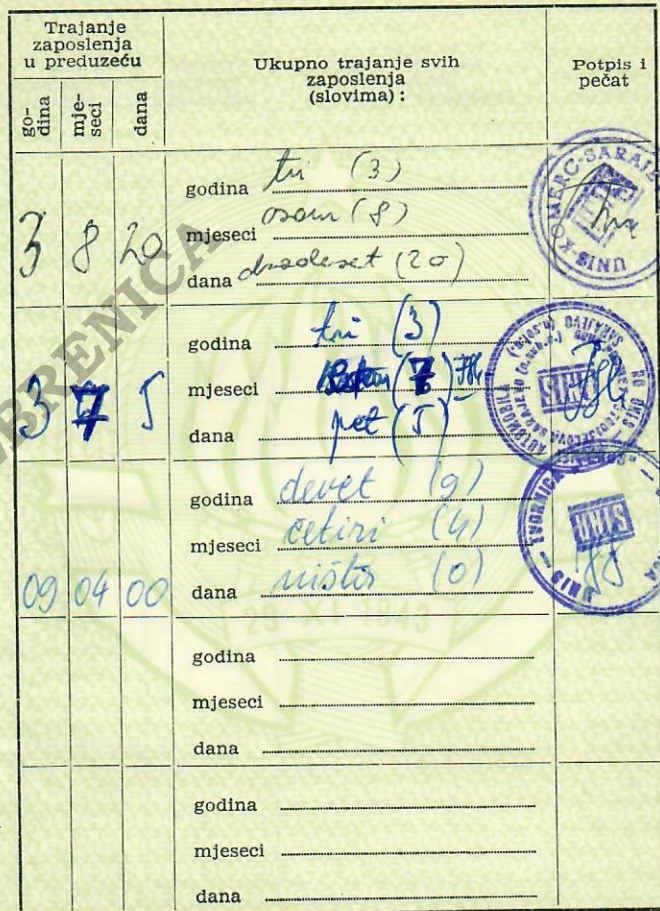 Trajanje
zaposlenja
u preduzeću
Ukupno trajanje svih
zaposlenja
(slovima):
Potpis i
pečat
go-
dina
mje-
seci
dana
3 8 20
godina tri (3)
mjeseci osam (8)
dana dvadeset (20)
UNIS KOMERC-SARAJE
3 7 5
godina tri (3)
mjeseci (7)
dana pet (5)
09 04 00
godina devet (9)
mjeseci četiri (4)
dana ništa (0)
godina
mjeseci
dana
godina
mjeseci
dana
BRENICA